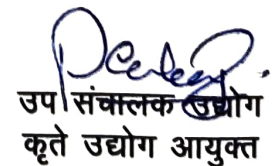 उप संचालक उद्योग
कृते उद्योग आयुक्त